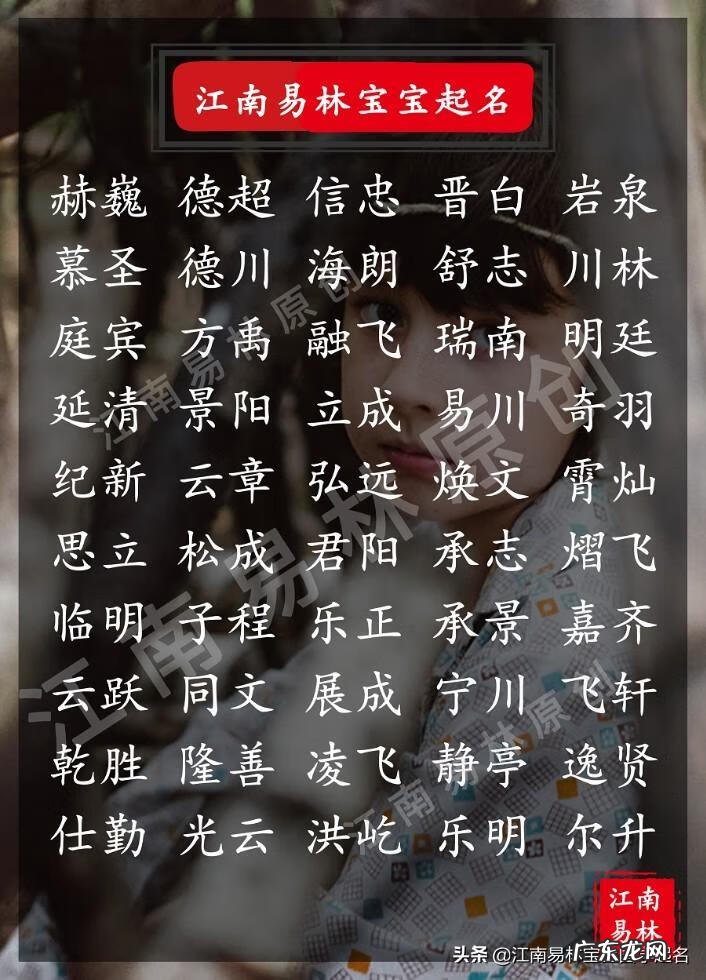 江南易林宝宝起名
赫巍 德超 信忠 晋白 岩泉
慕圣 德川 海朗 舒志 川林
庭宾 方禹 融飞 瑞南 明廷
延清 景阳 立成 易川 奇羽
纪新 云章 弘远 焕文 霄灿
思立 松成 君阳 承志 熠飞
临明 子程 乐正 承景 嘉齐
云跃 同文 展成 宁川 飞轩
乾胜 隆善 凌飞 静亭 逸贤
仕勤 光云 洪屹 乐明 尔升
江南易林原创
江南易林原创
江南易林原创
江南
易林
广东龙网
头条 @江南易林宝宝起名